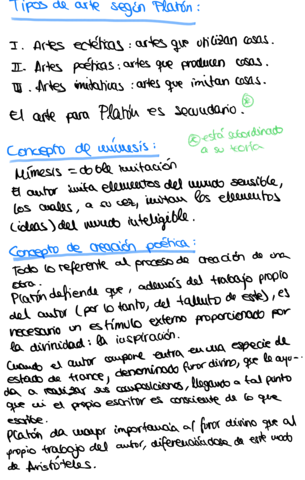 Tipos de arte según Platón:
I. Artes ectéticas: artes que utilizan cosas.
II. Artes poéticas: artes que producen cosas.
III. Artes imitativas: artes que imitan cosas.
El arte para Platón es secundario. *
* está subordinado
a su teoría
Concepto de mímesis:
Mímesis = doble imitación
El autor imita elementos del mundo sensible,
los cuales, a su vez, imitan los elementos
(ideas) del mundo inteligible.
Concepto de creación poética:
Todo lo referente al proceso de creación de una
obra.
Platón defiende que, además del trabajo propio
del autor (por lo tanto, del talento de este), es
necesario un estímulo externo proporcionado por
la divinidad: la inspiración.
Cuando el autor compone entra en una especie de
estado de trance, denominado furor divino, que le ayu-
da a realizar sus composiciones, llegando a tal punto
que ni el propio escritor es consciente de lo que
escribe.
Platón da mayor importancia al furor divino que al
propio trabajo del autor, diferenciándose de este modo
de Aristóteles.